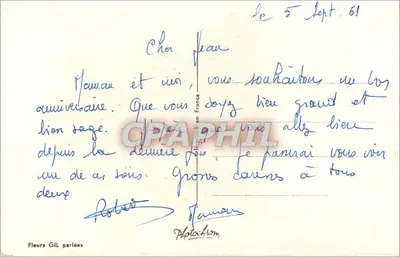 le 5 Sept. 61
Cher Jean
Maman et moi, vous souhaitons un bon
anniversaire. Que vous soyez bien grand et
bien sage. J'espère que vous allez bien
depuis la dernière fois. Je passerai vous voir
un de ces soirs. Grosses caresses à tous
deux
Maman
Fleurs GIL perlées
Photochrom
en France
CPAPHIL